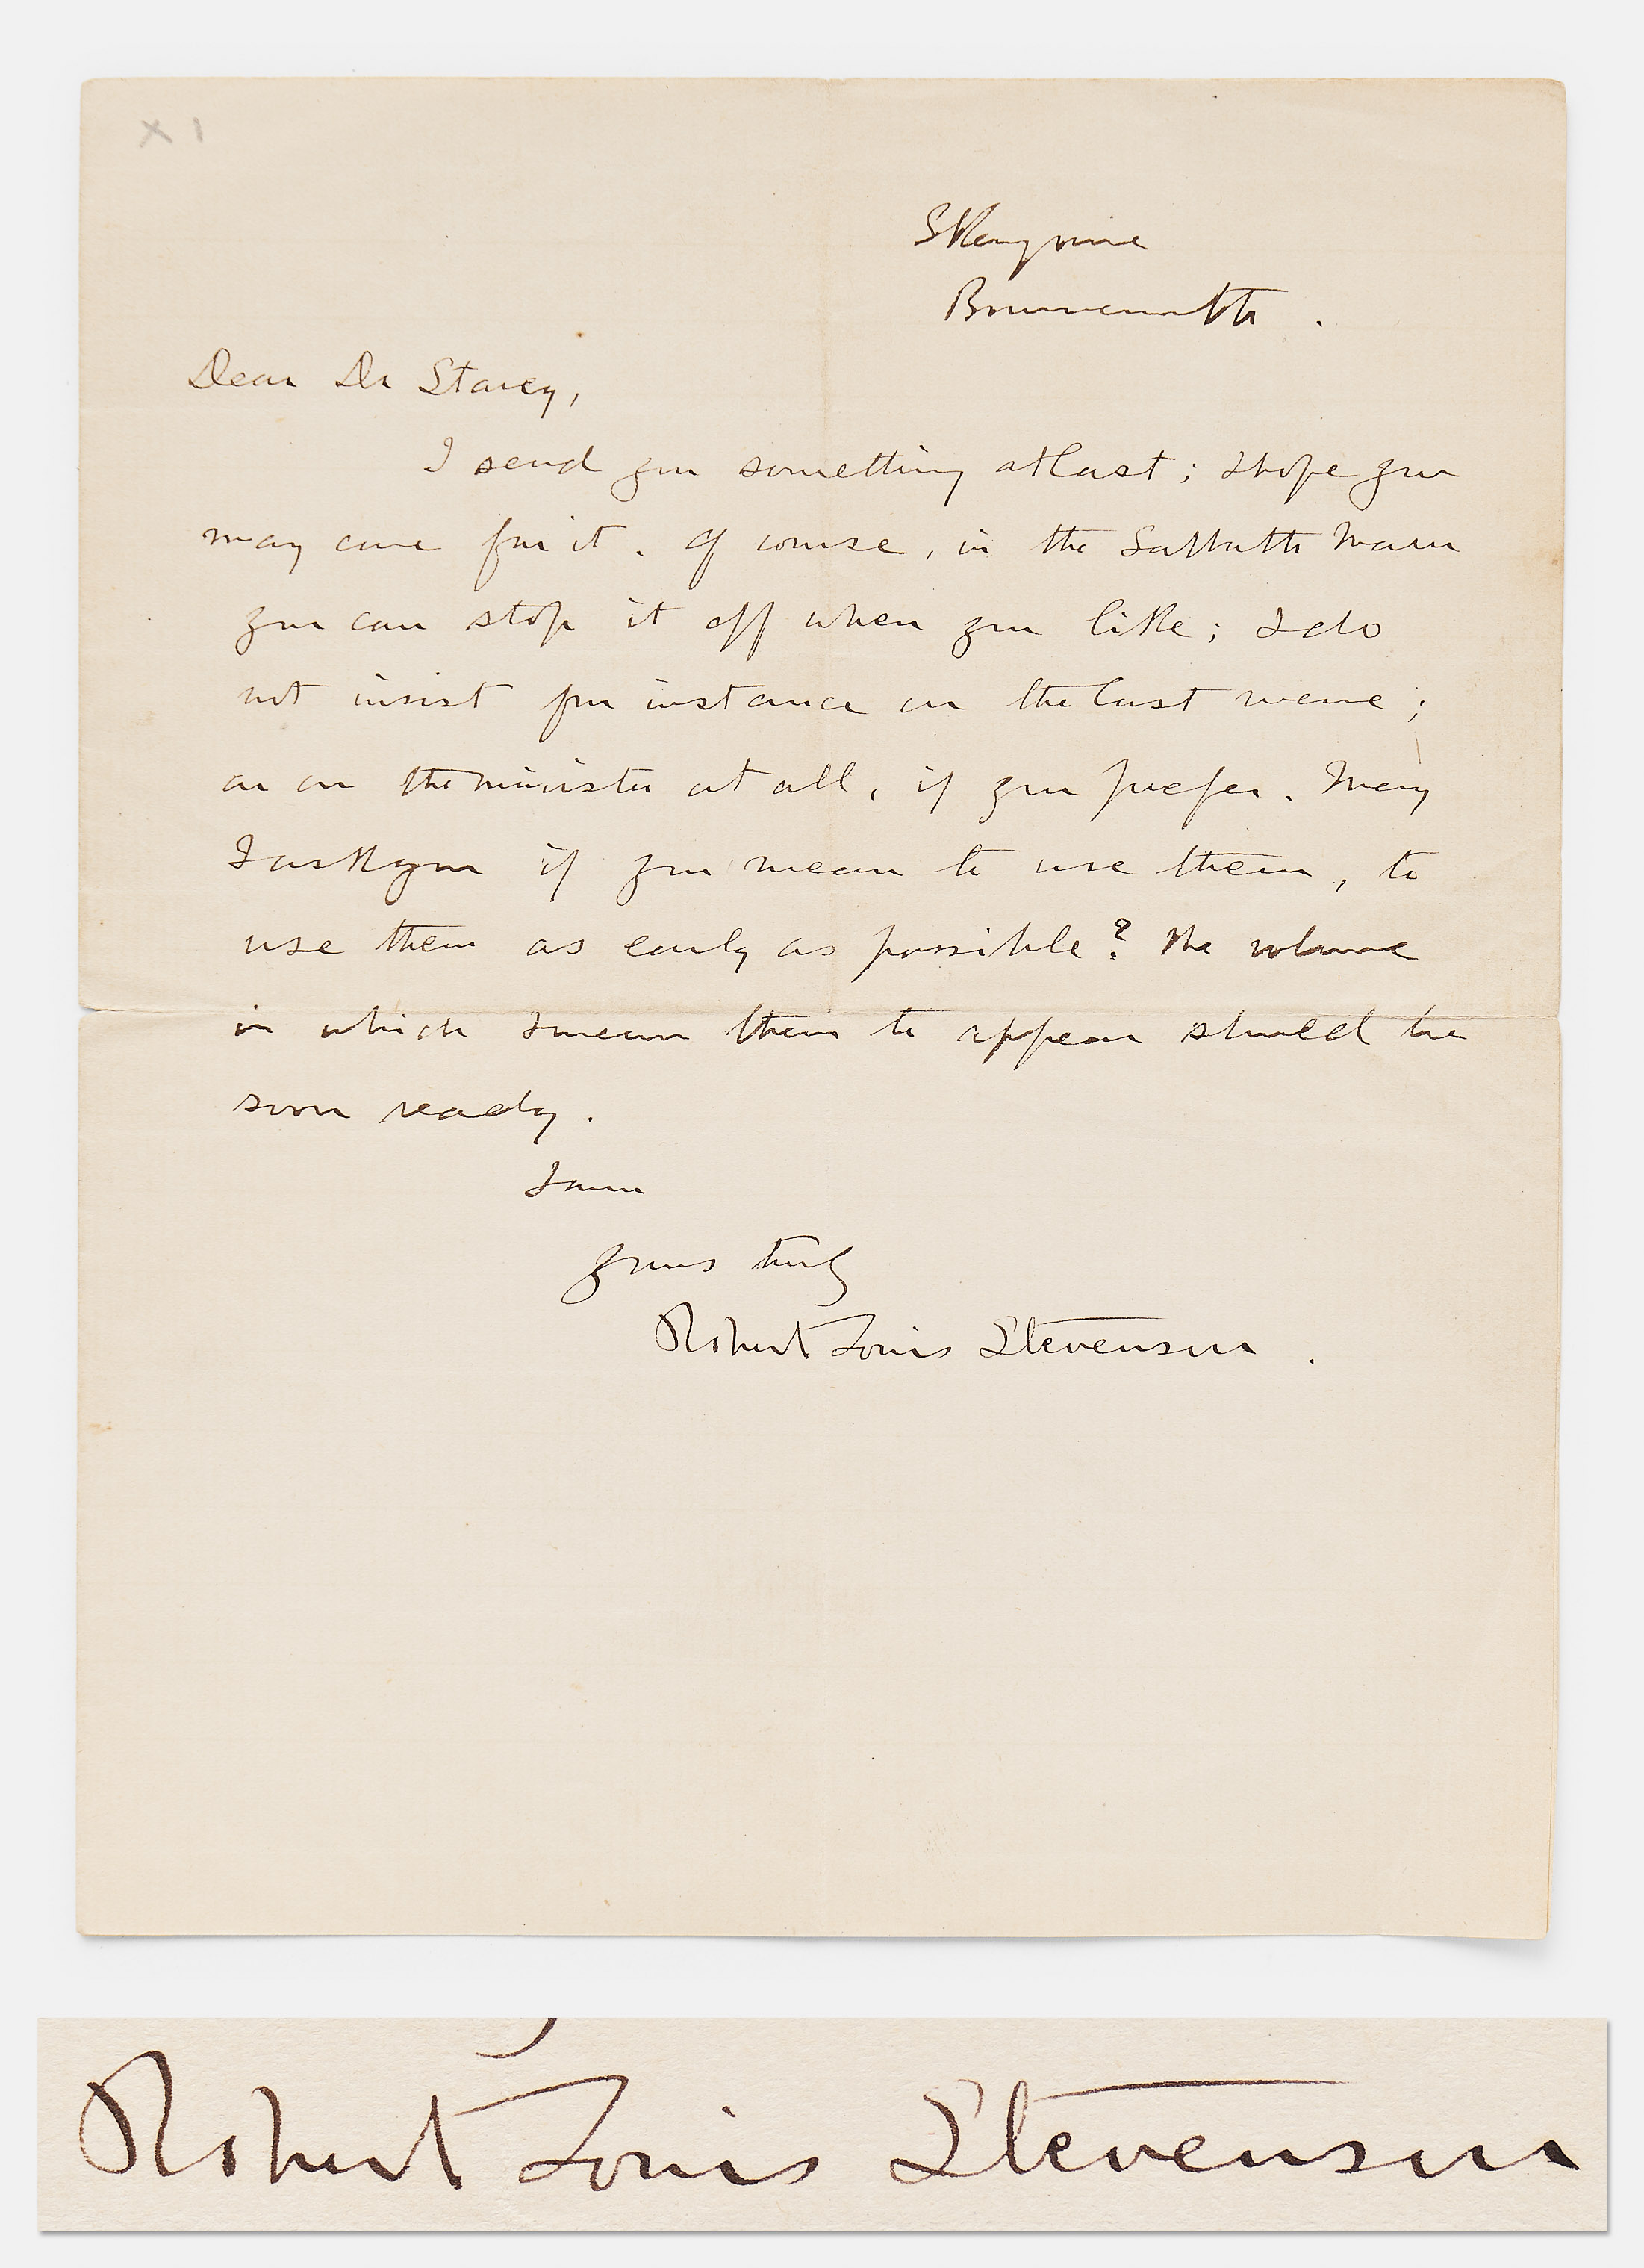 X 1
Skerryvore
Bournemouth.
Dear Dr Stacey,
I send you something at last; I hope you
may care for it. Of course, in the Sabbath Morn
you can stop it off when you like; I do
not insist for instance on the last verse;
or on the minister at all, if you prefer. May
I ask you if you mean to use them, to
use them as early as possible? The volume
in which I mean them to appear should be
soon ready.
I am
yours truly
Robert Louis Stevenson.
Robert Louis Stevenson